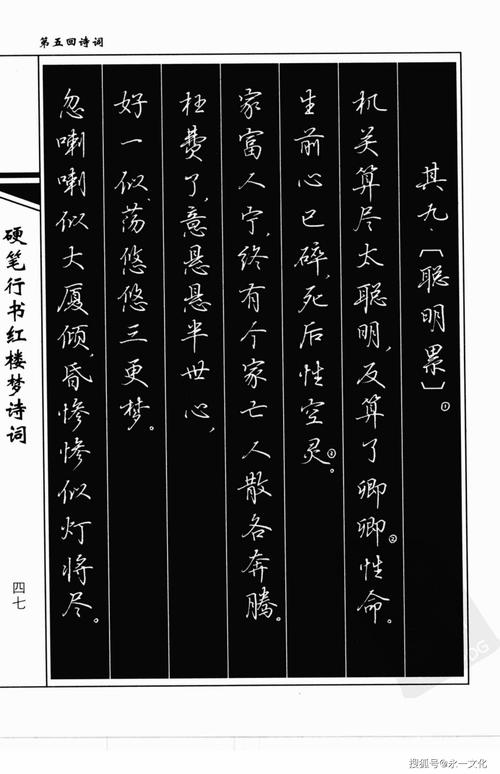 第五回诗词
其九·〔聪明累〕①
机关算尽太聪明，反算了卿卿②性命。
生前心已碎，死后性空灵③。
家富人宁，终有个家亡人散各奔腾。
枉费了，意悬悬半世心，
好一似，荡悠悠三更梦。
忽喇喇似大厦倾，昏惨惨似灯将尽。
硬笔行书红楼梦诗词
四七
搜狐号@永一文化